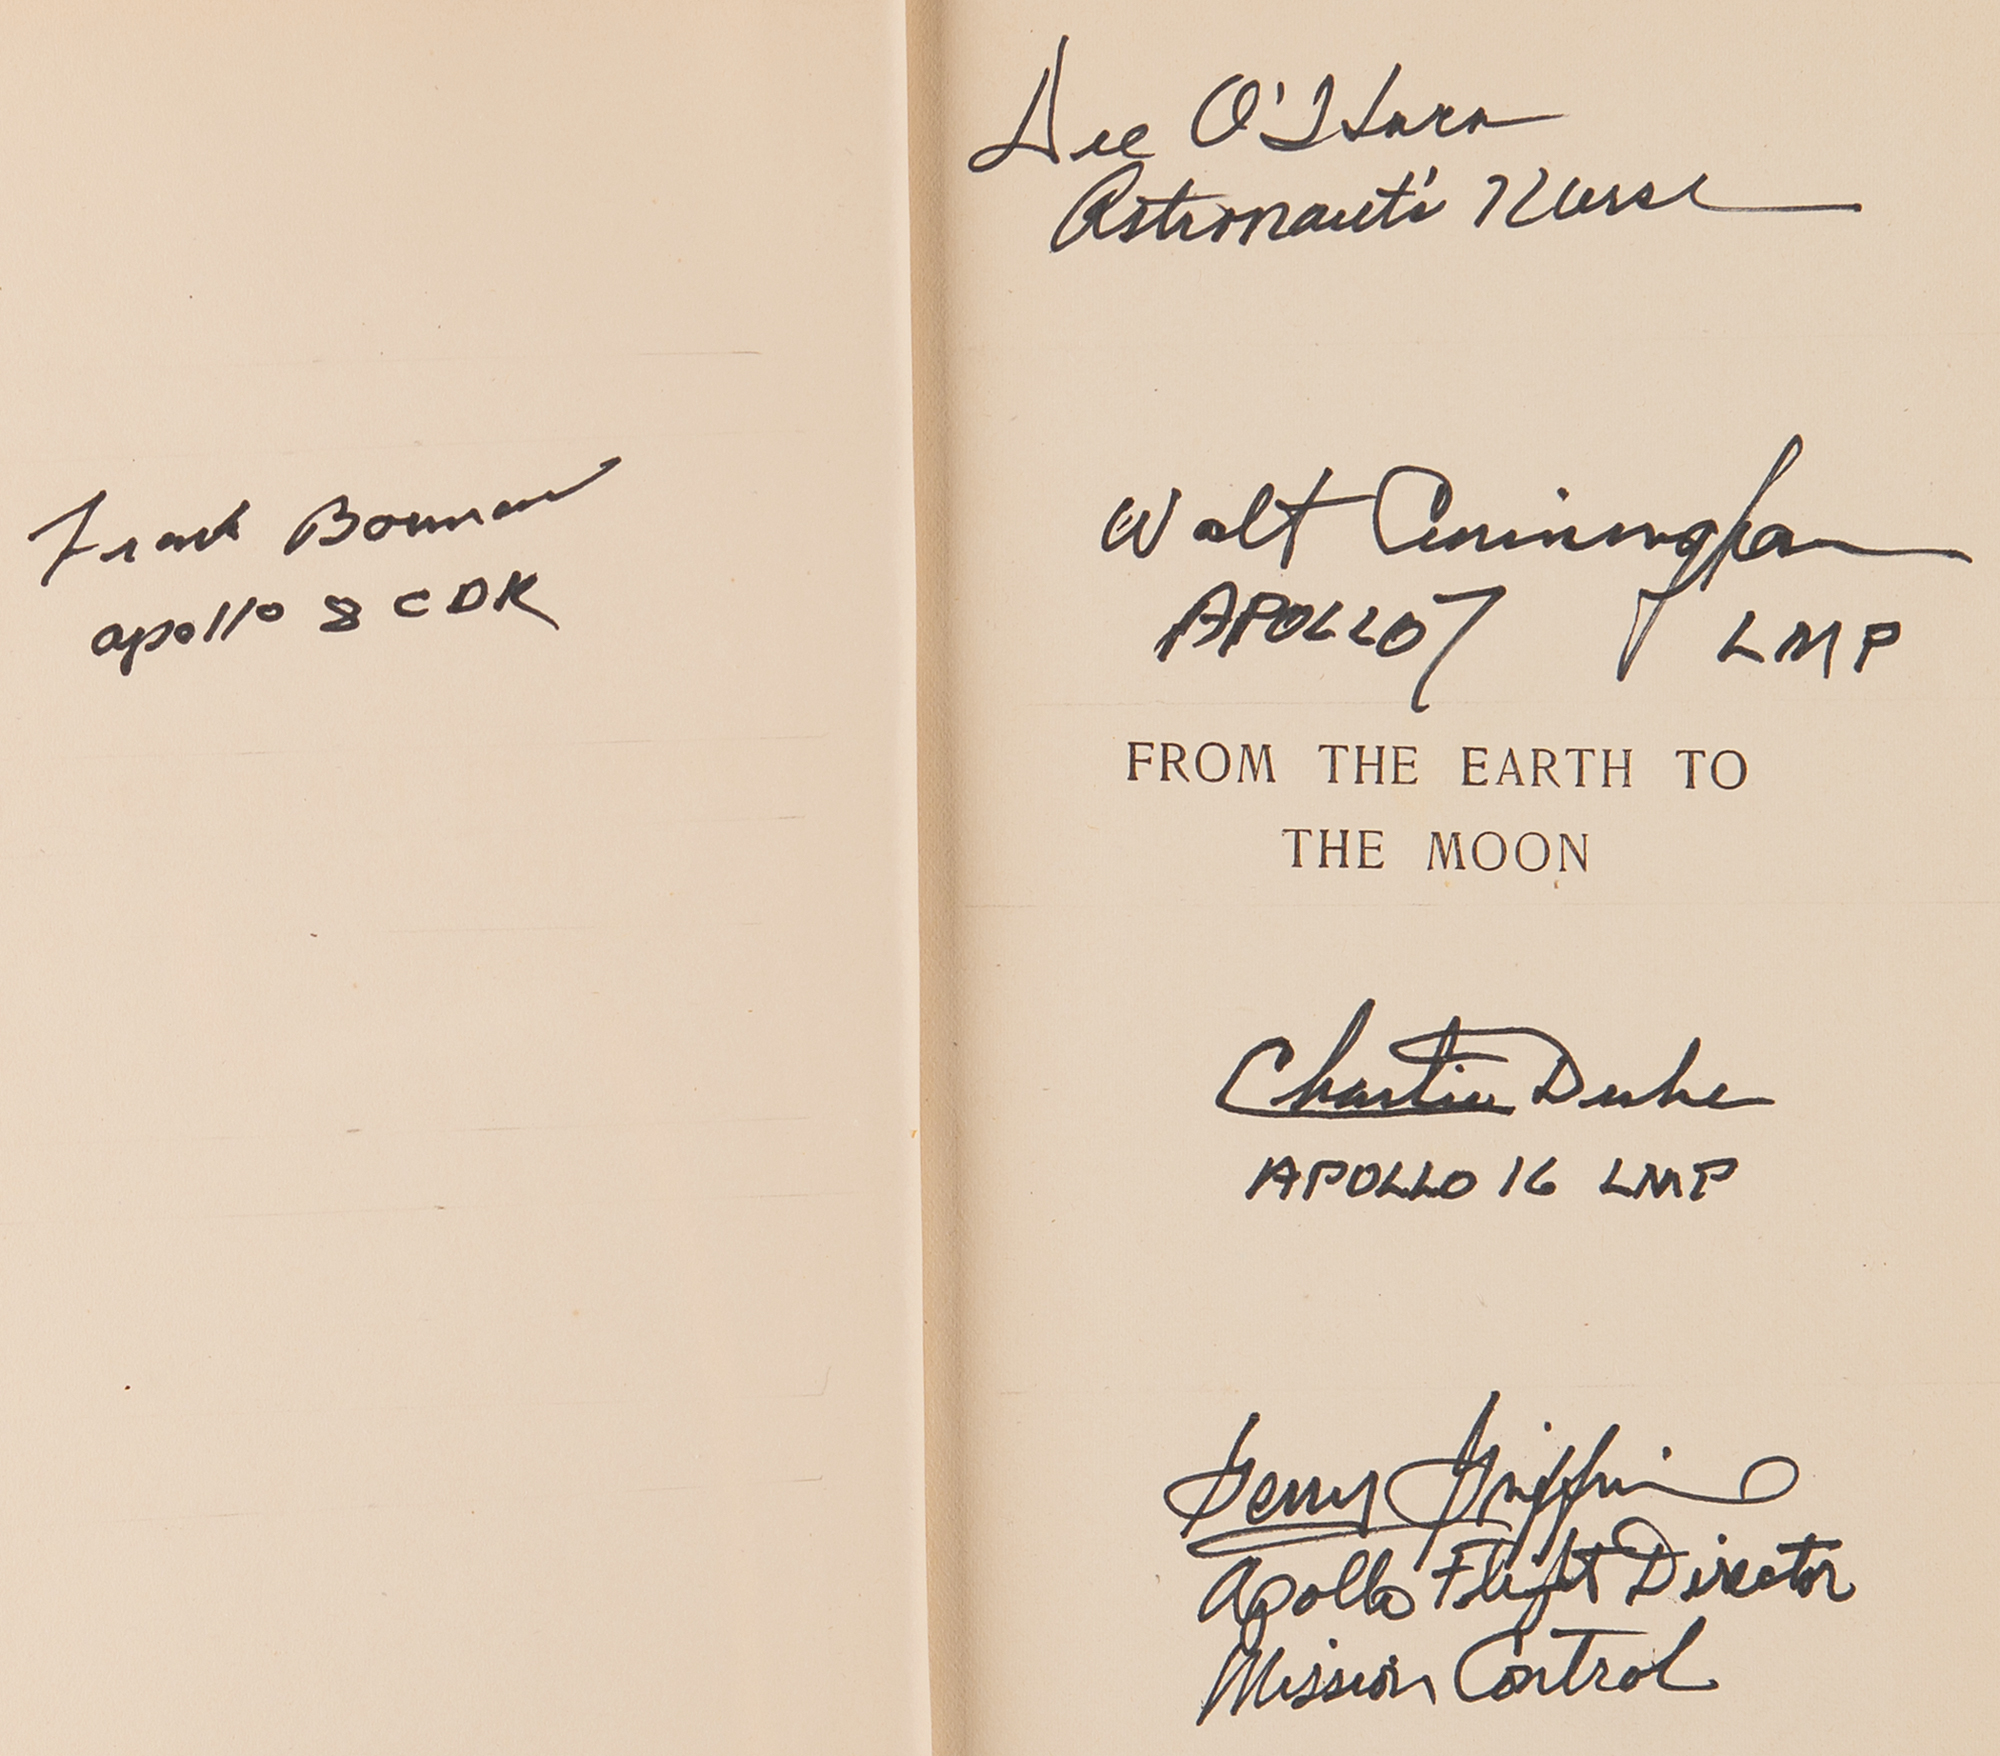 Frank Borman
apollo 8 CDR
Dee O'Hara
Astronauts' Nurse
Walt Cunningham
APOLLO 7 LMP
FROM THE EARTH TO
THE MOON
Charlie Duke
APOLLO 16 LMP
Gerry Griffin
Apollo Flight Director
Mission Control